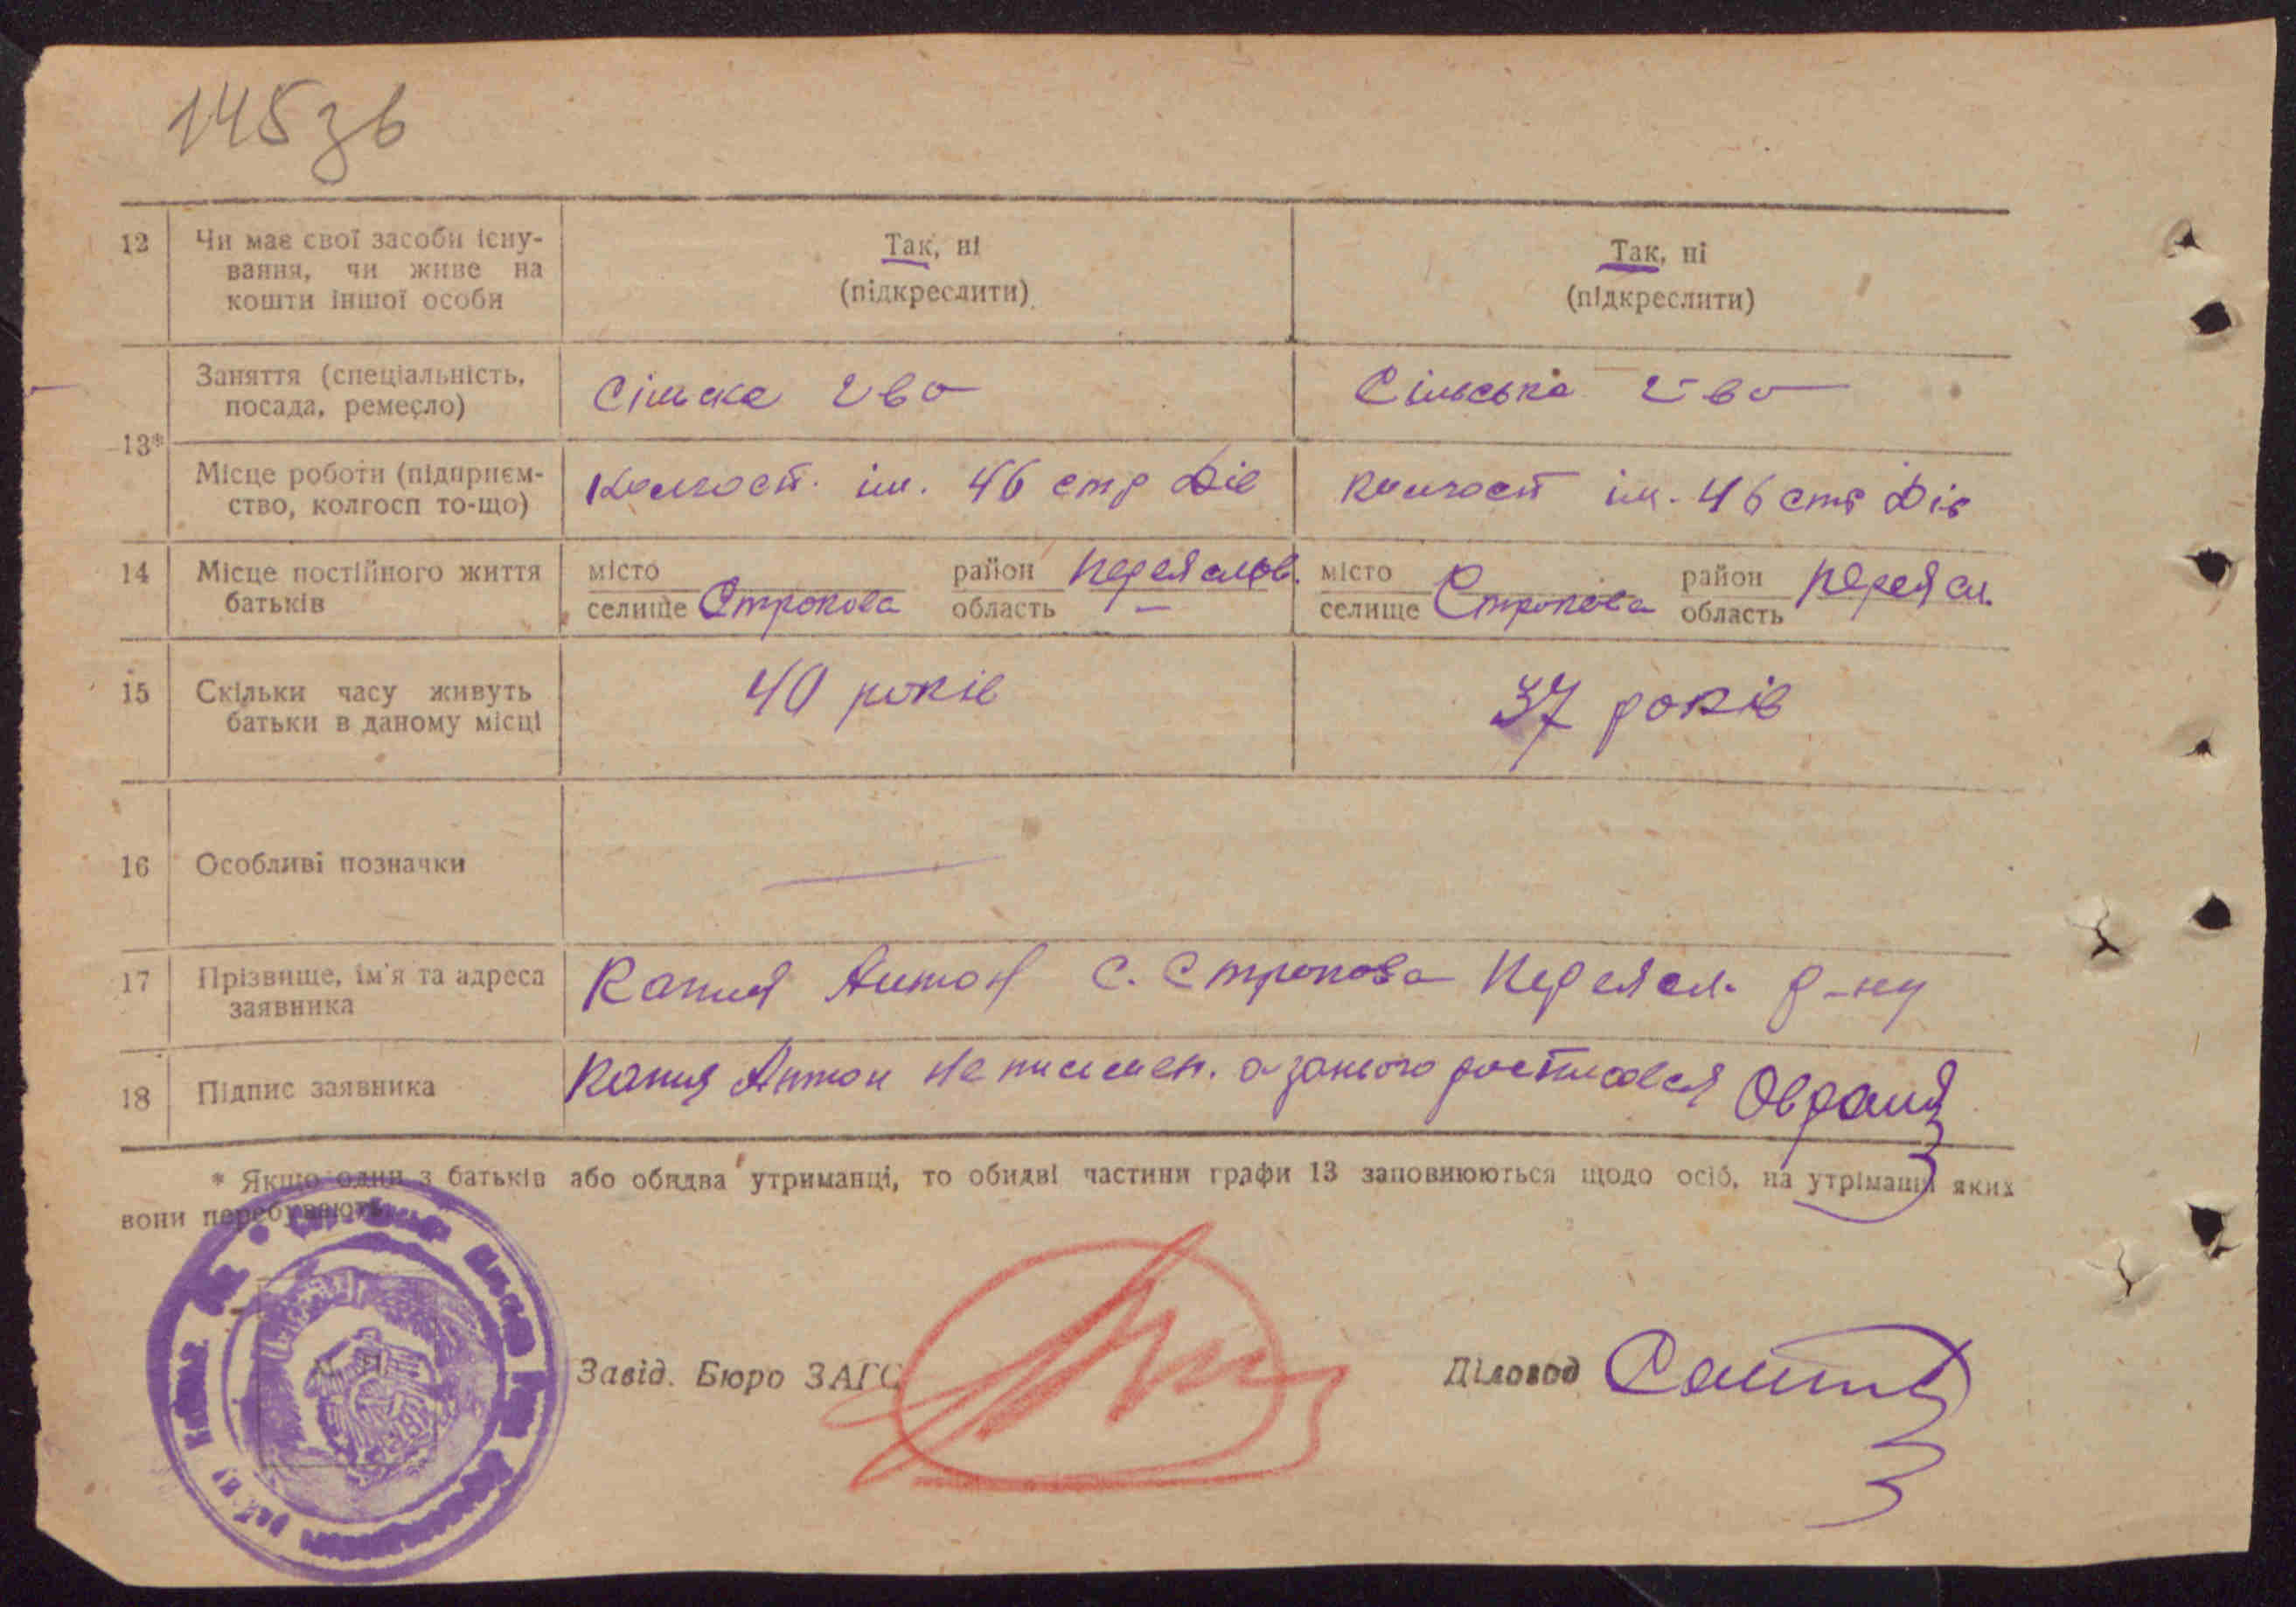 145зв
12 Чи має свої засоби існу-
вання, чи живе на
кошти іншої особи
Так, ні
(підкреслити)
Так, ні
(підкреслити)
13*
Заняття (спеціальність,
посада, ремесло)
Сільска г-во
Сільська г-во
Місце роботи (підприєм-
ство, колгосп то-що)
Колгосп. ім. 46 стр Див
Колгосп ім. 46 стр Див
14 Місце постійного життя
батьків
місто
селище Строкова
район Переяслов.
область —
місто
селище Строкова
район Переясл.
область
15 Скільки часу живуть
батьки в даному місці
40 років
37 років
16 Особливі позначки —
17 Прізвище, ім'я та адреса
заявника
Капия Антон С. Строкова Переясл. р-ну
18 Підпис заявника
Капия Антон не письмен. а за нього
* Якщо один з батьків або обидва утриманці, то обидві частини графи 13 заповнюються щодо осіб, на утріманні яких
вони перебувають.
М. П.
Завід. Бюро ЗАГС
Діловод